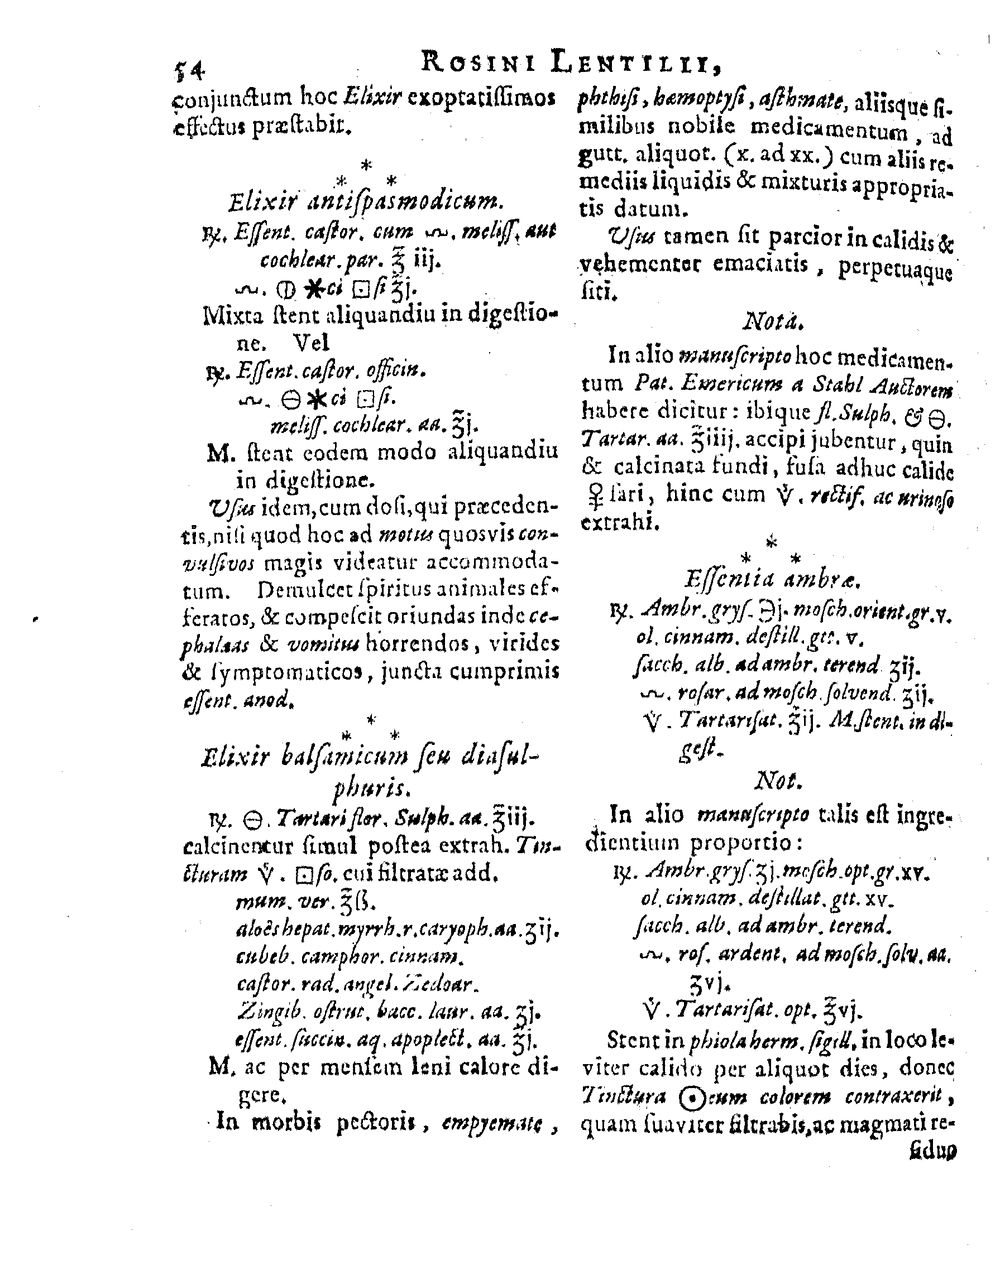 54
ROSINI LENTILII,
conjunctum hoc Elixir exoptatiſſimos
effectus præſtabit.
*
* *
Elixir antiſpasmodicum.
℞. Eſſent. caſtor. cum 🝆. meliſſ. aut
cochlear. par. ℥ iij.
🝆. 🜕 ✱ci ⚀ſi ℥j.
Mixta ſtent aliquandiu in digeſtio-
ne. Vel
℞. Eſſent. caſtor. officin.
🝆. 🜔 ✱ci ⚀ſi.
meliſſ. cochlear. aa. ℥j.
M. ſtent eodem modo aliquandiu
in digeſtione.
Uſus idem, cum doſi, qui præceden-
tis, niſi quod hoc ad motus quosvis con-
vulſivos magis videatur accommoda-
tum. Demulcet ſpiritus animales ef-
feratos, & compeſcit oriundas inde ce-
phalæas & vomitus horrendos, virides
& ſymptomaticos, juncta cumprimis
eſſent. anod.
*
* *
Elixir balſamicum ſeu diaſul-
phuris.
℞. 🜔. Tartari flor. Sulph. aa. ℥iij.
calcinentur ſimul poſtea extrah. Tin-
cturam V̇. ⚀ſo. cui filtratæ add.
mum. ver. ℥ß.
aloës hepat. myrrh. r. caryoph. aa. ʒij.
cubeb. camphor. cinnam.
caſtor. rad. angel. Zedoar.
Zingib. oſtrut. bacc. laur. aa. ʒj.
eſſent. ſuccin. aq. apoplect. aa. ℥j.
M. ac per menſem leni calore di-
gere.
In morbis pectoris, empyemate,
phthiſi, hæmoptyſi, aſthmate, aliisque ſi-
milibus nobile medicamentum, ad
gutt. aliquot. (x. ad xx.) cum aliis re-
mediis liquidis & mixturis appropria-
tis datum.
Uſus tamen ſit parcior in calidis &
vehementer emaciatis, perpetuaque
ſiti.
Nota.
In alio manuſcripto hoc medicamen-
tum Pat. Emericum a Stahl Auctorem
habere dicitur: ibique fl. Sulph. & 🜔.
Tartar. aa. ℥iiij. accipi jubentur, quin
& calcinata fundi, fuſa adhuc calide
♀ ſari, hinc cum V̇. rectif. ac urinoſo
extrahi.
*
* *
Eſſentia ambræ.
℞. Ambr. gryſ. ℈j. moſch. orient. gr. v.
ol. cinnam. deſtill. gtt. v.
ſacch. alb. ad ambr. terend. ʒij.
🝆. roſar. ad moſch. ſolvend. ʒij.
V̇. Tartariſat. ℥ij. M. ſtent. in di-
geſt.
Not.
In alio manuſcripto talis eſt ingre-
dientium proportio:
℞. Ambr. gryſ. ʒj. moſch. opt. gr. xv.
ol. cinnam. deſtillat. gtt. xv.
ſacch. alb. ad ambr. terend.
🝆. roſ. ardent. ad moſch. ſolv. aa.
ʒvj.
V̇. Tartariſat. opt. ℥vj.
Stent in phiola herm. ſigill. in loco le-
viter calido per aliquot dies, donec
Tinctura ☉eum colorem contraxerit,
quam ſuaviter filtrabis, ac magmati re-
ſiduo